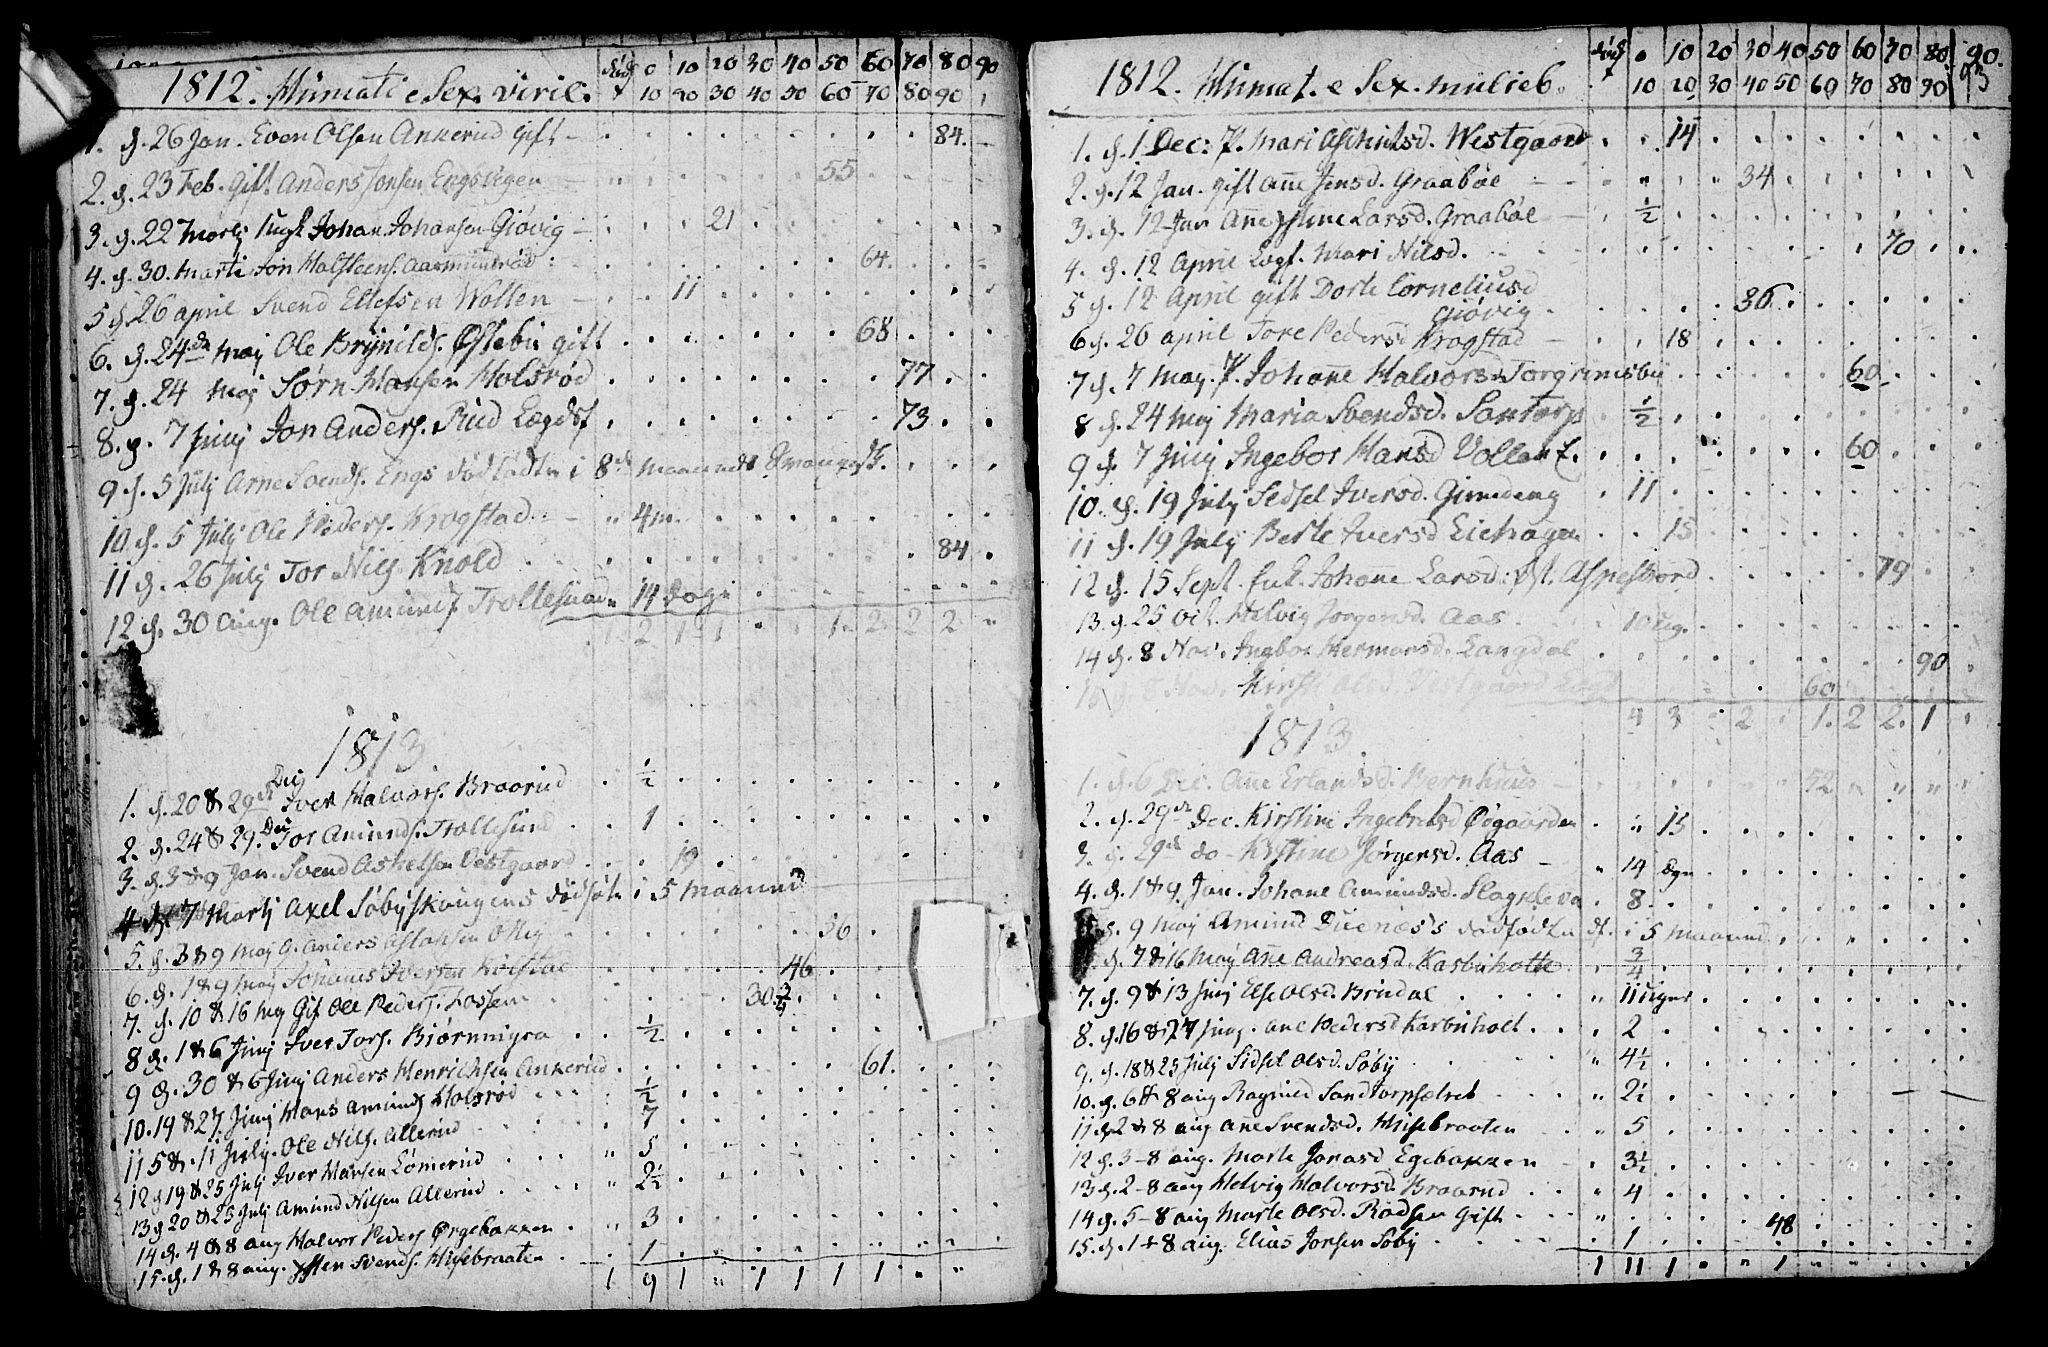 1812. Humati e Sex. viril. død f 0 10 20 30 40 50 60 70 80 90
10 20 30 40 50 60 70 80 90
1. d. 26 Jan. Even Olsen Ankerud gift 84.
2. d. 23 Feb. gift Anders Jonsen Engsvegen 55
3. d. 22 Martj ungk Johan Johansen Giøvig 21
4. d. 30. Marti Jon Halsteens. Aasmundrød 64.
5 d. 26 april Svend Ellefsen Wollen 11
6. d. 24de Maj Ole Brynilds. Østebÿe gift 68
7. d. 24 Maj Sørn Hansen Holsrød 77
8. d. 7 Junj Jon Anders. Rud Lægdsf 73
9 d. 5 Julj Arne Svends. Engs dødfødte i 8de maaneds Svangersk.
10 d. 5 Julj Ole Peders. Krogstad 4 m.
11 d. 26 Julj Tor Nils. Knold 84
12 d. 30 Aug. Ole Amunds. Trollesund 14 dage
1 2 1 1 1. 2 2 2
1813
1. d. 20 & 29de Dec Iver Halvors. Braarud 1/2
2. d. 24 & 29. Dec Tor Amunds. Trollesund 1
3. d. 3 & 9 Jan. Svend Askelsen Vestgaard 19
4 d. 7 Martj Axel Søbyskougens dødføte i 5 maaned
5. d. 3 & 9 Maj G. Anders Aslaksen 56
6. d. 1 & 9 Maj Johanes Iversen 46
7. d. 10 & 16 Maj Gif Ole Peders. Fossem 30 3/4
8 d. 1 & 6 Junj Iver Tors. Biørnmyra 1/2
9 d. 30 & 6 Junj Anders Henrichsen Ankerud 61.
10. 14 & 27 Junj Hans Amunds Holsrød 1/2
11 5 & 11 Julj. Ole Nils. Allerud 7
12 d. 19 & 25 Julj Iver Hansen Lømerud 5
13 d 20 & 25 Julj Amund Nilsen Allerud 2 1/2
14 d. 4 & 8 aug Halvor Peders Ørgebakken 3
15. d. 1 & 8 aug. Østen Svends. Husebraaten 1
1 9 1 1 1 1 1
1812. Humat. e Sex. mulieb. død f 0 10 20 30 40 50 60 70 80 90.
10 20 30 40 50 60 70 80 90 93
1. d. 1 Dec: P. Mari Westgaard 14
2. d. 12 Jan. gift Ane Jensd. Graabøe 34
3. d. 12 Jan Ane Larsd. Graabøe 1/2
4. d. 12 April Lægf. Mari Nilsd. 70
5 d. 12 April gift Dorte Corneliusd 36
Giøvig
6 d. 26 april Tore Pedersd Krogstad 18
7 d. 7 Maj. P. Johane Halvorsd. Torgrimsbÿ 60
8 d. 24 Maj Maria Svendsd. Santorp 1/2
9 d. 7 Junj Ingebor Hansd Vollen L. 60
10. d. 19 Julj Sidsel Iversd. Grimdeng 11
11 d. 19 Julj Berte Iversd Eiehagen 15
12 d. 15 Sept. Enk. Johane Larsd. Øst. Aspestrand 79
13. d. 25 Oct. Helvig Jørgensd. Aas 10 ug.
14 d. 8 Nov. Ingbor Hermansd. Langdal 90
15 d. 8 Nov. Kirsti Olsd. Vestgaard 60
4 3 2 1. 2 2. 1
1813
1. d. 6 Dec. Ane Erlandsd. Bernhuus 52
2. d. 29de Dec. Kirstine Ingebretsd Øøgaarden 15
3. d. 29de do Kirstine Jørgensd. Aas 14 dgn
4. d. 1 & 9. Jan. Johane Amundsd. 8
5. d. 9 Maj Amund dødfødte df. i 5 maaned
d. 7 & 16 Maj Ane Andreasd. Kasbnholte 3/4
7. d. 9 & 13 Junj Else Olsd. Brudal 11 uger
8. d. 16 & 27 Junj. Ane Pedersd Karbnholt 2
9. d. 18 & 25 Julj Sidsel Olsd. Søby 4 1/2
10. d. 6 & 8 aug Ragnild Sandtorpsetret 2 1/2
11 d 2 & 8 aug Ane Svendsd. Husebraaten 5
12 d. 3-8 aug. Marte Jonasd Egebakken 3 1/2
13 d. 2-8 aug Helvig Halvorsd Braarud 4
14 d. 5-8 aug Marte Olsd. Rødsen Gift 48
15. d. 1 & 8 aug. Elias Jonsen Søby 1
1 11 1 1